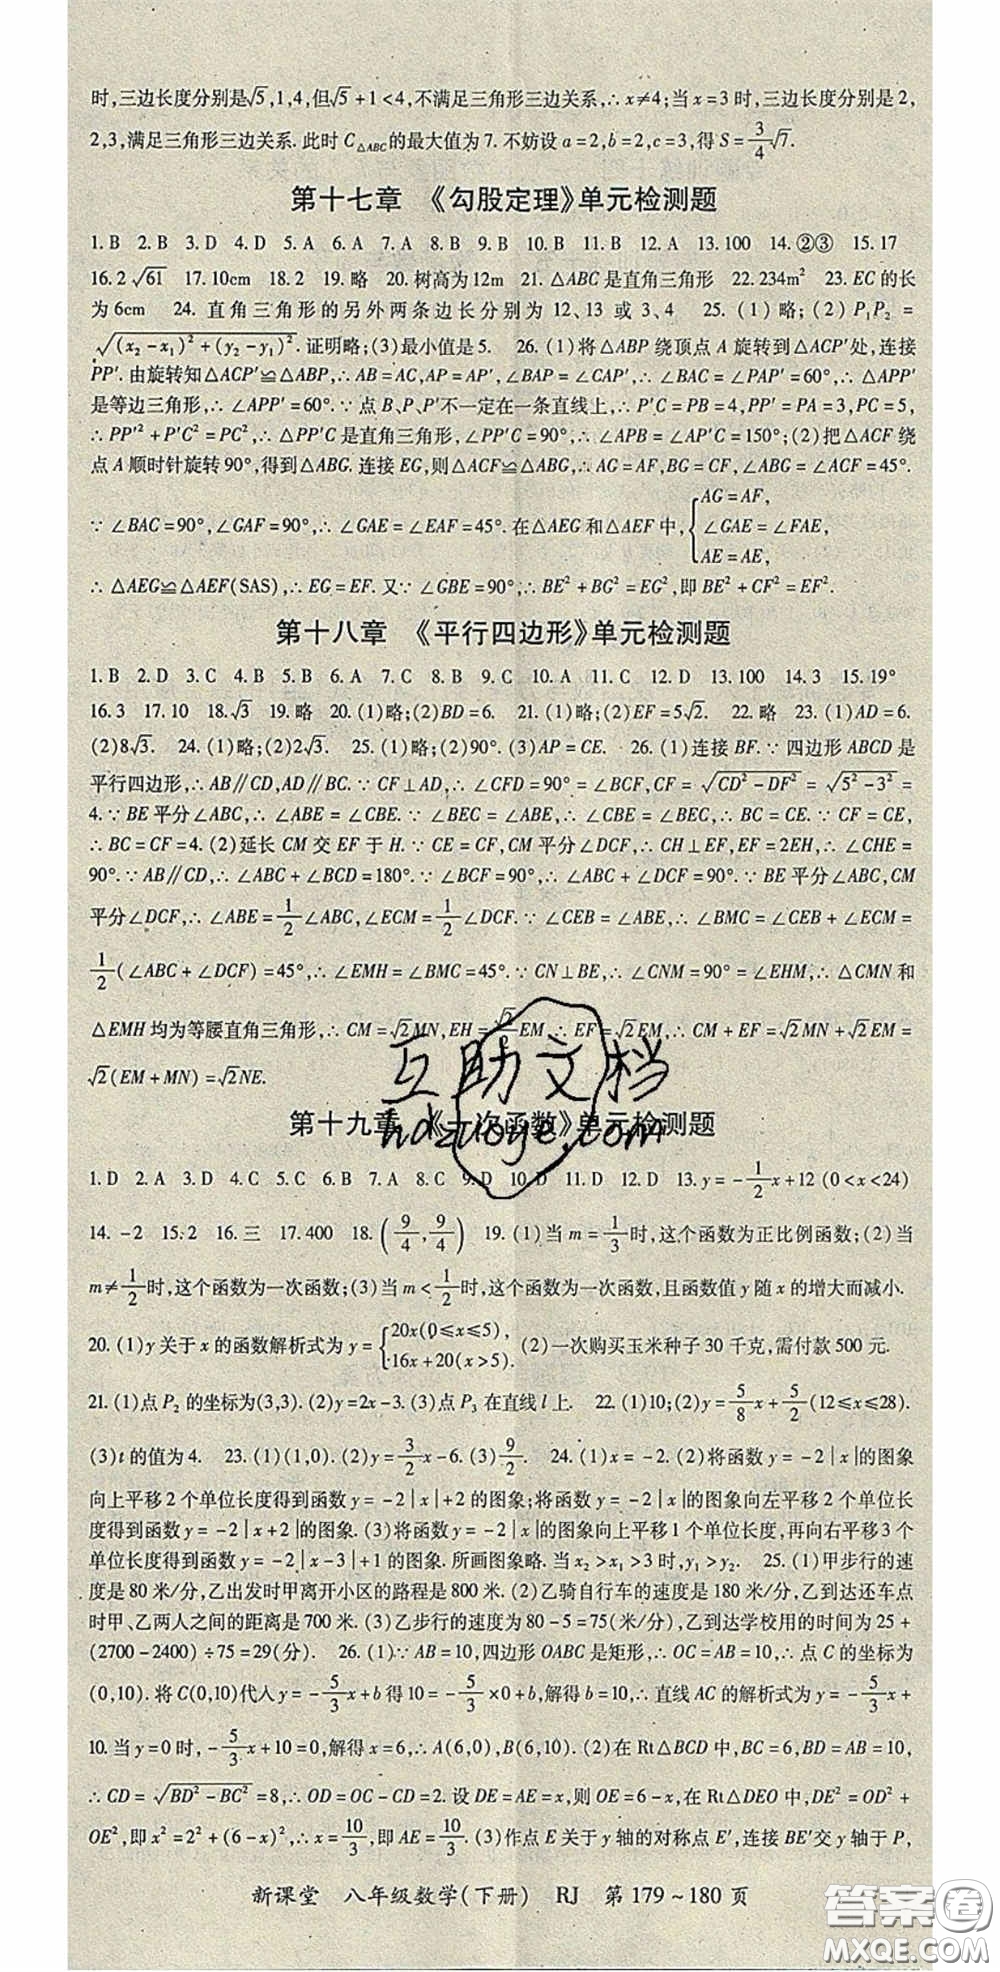 时,三边长度分别是√5,1,4,但√5+1<4,不满足三角形三边关系,∴x≠4;当x=3时,三边长度分别是2,
2,3,满足三角形三边关系.此时C△ABC的最大值为7.不妨设a=2,b=2,c=3,得S=3/4√7.
第十七章 《勾股定理》单元检测题
1.B 2.B 3.D 4.D 5.A 6.A 7.A 8.B 9.B 10.B 11.B 12.A 13.100 14.②③ 15.17
16.2√61 17.10cm 18.2 19.略 20.树高为12m 21.△ABC是直角三角形 22.234m² 23.EC的长
为6cm 24.直角三角形的另外两条边长分别为12、13或3、4 25.(1)略;(2)P₁P₂=
√(x₂-x₁)²+(y₂-y₁)².证明略;(3)最小值是5. 26.(1)将△ABP绕顶点A旋转到△ACP′处,连接
PP′.由旋转知△ACP′≌△ABP,∴AB=AC,AP=AP′,∠BAP=∠CAP′,∴∠BAC=∠PAP′=60°,∴△APP′
是等边三角形,∴∠APP′=60°.∵点B、P、P′不一定在一条直线上,∴P′C=PB=4,PP′=PA=3,PC=5,
∴PP′²+P′C²=PC²,∴△PP′C是直角三角形,∠PP′C=90°,∴∠APB=∠AP′C=150°;(2)把△ACF绕
点A顺时针旋转90°,得到△ABG.连接EG,则△ACF≌△ABG,∴AG=AF,BG=CF,∠ABG=∠ACF=45°.
∵∠BAC=90°,∠GAF=90°,∴∠GAE=∠EAF=45°.在△AEG和△AEF中,{AG=AF,
∠GAE=∠FAE,
AE=AE,
∴△AEG≌△AEF(SAS),∴EG=EF.又∵∠GBE=90°,∴BE²+BG²=EG²,即BE²+CF²=EF².
第十八章 《平行四边形》单元检测题
1.B 2.D 3.C 4.B 5.B 6.A 7.C 8.B 9.C 10.A 11.C 12.D 13.100 14.3 15.19°
16.3 17.10 18.√3 19.略 20.(1)略;(2)BD=6. 21.(1)略;(2)EF=5√2. 22.略 23.(1)AD=6.
(2)8√3. 24.(1)略;(2)2√3. 25.(1)略;(2)90°.(3)AP=CE. 26.(1)连接BF.∵四边形ABCD是
平行四边形,∴AB∥CD,AD∥BC.∵CF⊥AD,∴∠CFD=90°=∠BCF,CF=√CD²-DF²=√5²-3²=
4.∵BE平分∠ABC,∴∠ABE=∠CBE.∵∠BEC=∠ABE,∴∠CBE=∠BEC,∴BC=CE.∵CF=CE,
∴BC=CF=4.(2)延长CM交EF于H.∵CE=CF,CM平分∠DCF,∴CH⊥EF,EF=2EH,∴∠CHE=
90°.∵AB∥CD,∴∠ABC+∠BCD=180°.∵∠BCF=90°,∴∠ABC+∠DCF=90°.∵BE平分∠ABC,CM
平分∠DCF,∴∠ABE=1/2∠ABC,∠ECM=1/2∠DCF.∵∠CEB=∠ABE,∴∠BMC=∠CEB+∠ECM=
1/2(∠ABC+∠DCF)=45°,∴∠EMH=∠BMC=45°.∵CN⊥BE,∴∠CNM=90°=∠EHM,∴△CMN和
△EMH均为等腰直角三角形,∴CM=√2MN,EH=√2/2EM,∴EF=√2EM,∴CM+EF=√2MN+√2EM=
√2(EM+MN)=√2NE.
互助文档
hdzuoye.com
第十九章 《一次函数》单元检测题
1.D 2.A 3.D 4.C 5.D 6.B 7.A 8.C 9.D 10.D 11.D 12.D 13.y=-1/2x+12(0<x<24)
14.-2 15.2 16.三 17.400 18.(9/4,9/4) 19.(1)当m=1/3时,这个函数为正比例函数;(2)当
m≠1/2时,这个函数为一次函数;(3)当m<1/2时,这个函数为一次函数,且函数值y随x的增大而减小.
20.(1)y关于x的函数解析式为y={20x(0≤x≤5),
16x+20(x>5).(2)一次购买玉米种子30千克,需付款500元.
21.(1)点P₂的坐标为(3,3).(2)y=2x-3.(3)点P₃在直线l上. 22.(1)10;(2)y=5/8x+5/2(12≤x≤28).
(3)t的值为4. 23.(1)(1,0).(2)y=3/2x-6.(3)9/2. 24.(1)x=-2.(2)将函数y=-2|x|的图象
向上平移2个单位长度得到函数y=-2|x|+2的图象;将函数y=-2|x|的图象向左平移2个单位长
度得到函数y=-2|x+2|的图象.(3)将函数y=-2|x|的图象向上平移1个单位长度,再向右平移3个
单位长度得到函数y=-2|x-3|+1的图象.所画图象略.当x₂>x₁>3时,y₁>y₂. 25.(1)甲步行的速
度是80米/分,乙出发时甲离开小区的路程是800米.(2)乙骑自行车的速度是180米/分,乙到达还车点
时甲、乙两人之间的距离是700米.(3)乙步行的速度为80-5=75(米/分),乙到达学校用的时间为25+
(2700-2400)÷75=29(分). 26.(1)∵AB=10,四边形OABC是矩形,∴OC=AB=10,∴点C的坐标为
(0,10).将C(0,10)代入y=-5/3x+b得10=-5/3×0+b,解得b=10,∴直线AC的解析式为y=-5/3x+
10.当y=0时,-5/3x+10=0,解得x=6,∴A(6,0),B(6,10).(2)在Rt△BCD中,BC=6,BD=AB=10,
∴CD=√BD²-BC²=8,∴OD=OC-CD=2.设DE=AE=x,则OE=6-x,在Rt△DEO中,DE²=OD²+
OE²,即x²=2²+(6-x)²,∴x=10/3,即AE=10/3.(3)作点E关于y轴的对称点E′,连接BE′交y轴于P,
新课堂 八年级数学(下册) RJ 第179~180页
答案圈
MXQE.COM